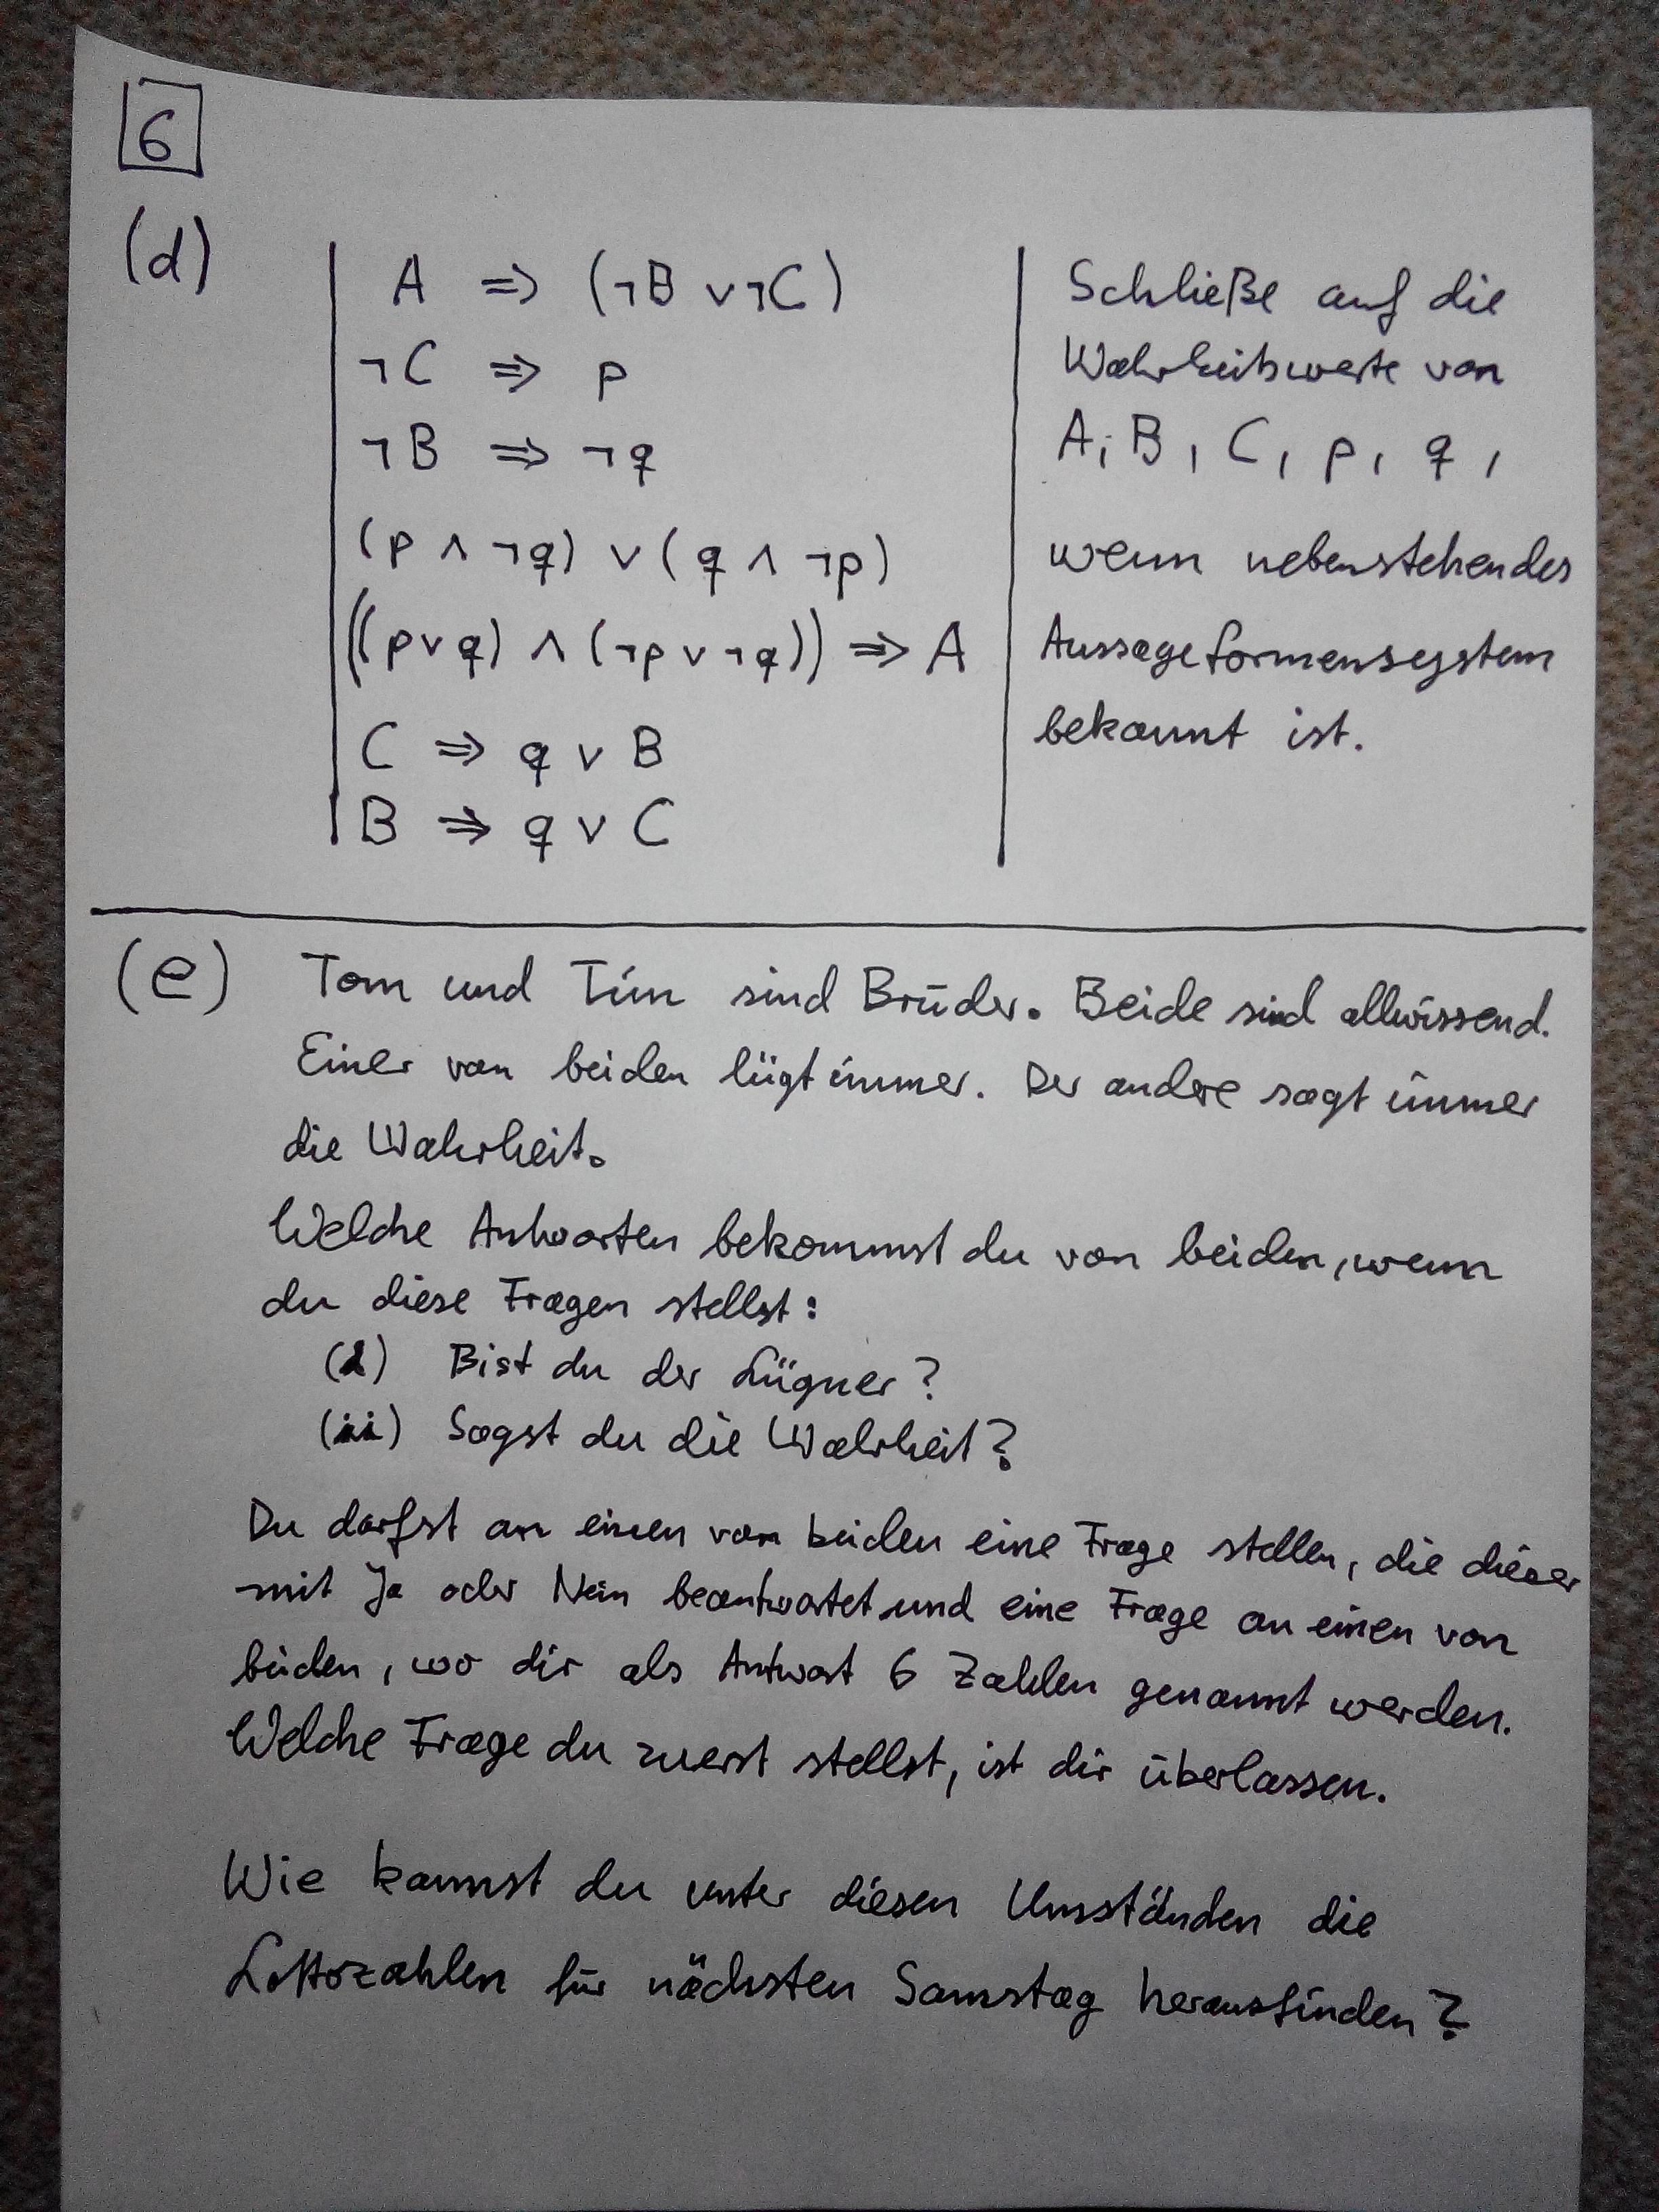 6
(d)
A ⇒ (¬B ∨ ¬C)
¬C ⇒ p
¬B ⇒ ¬q
(p ∧ ¬q) ∨ (q ∧ ¬p)
((p∨q) ∧ (¬p ∨ ¬q)) ⇒ A
C ⇒ q ∨ B
B ⇒ q ∨ C
Schließe auf die
Wahrheitswerte von
A, B, C, p, q,
wenn nebenstehendes
Aussageformensystem
bekannt ist.
(e)
Tom und Tim sind Brüder. Beide sind allwissend.
Einer von beiden lügt immer. Der andere sagt immer
die Wahrheit.
Welche Antworten bekommst du von beiden, wenn
du diese Fragen stellst:
(i) Bist du der Lügner?
(ii) Sagst du die Wahrheit?
Du darfst an einen von beiden eine Frage stellen, die dieser
mit Ja oder Nein beantwortet und eine Frage an einen von
beiden, wo dir als Antwort 6 Zahlen genannt werden.
Welche Frage du zuerst stellst, ist dir überlassen.
Wie kannst du unter diesen Umständen die
Lottozahlen für nächsten Samstag herausfinden?